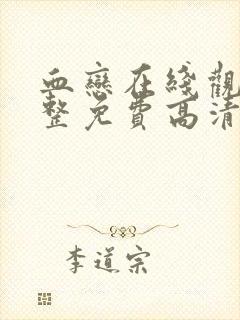 血戀在綫觀
整免費高清
李道宗